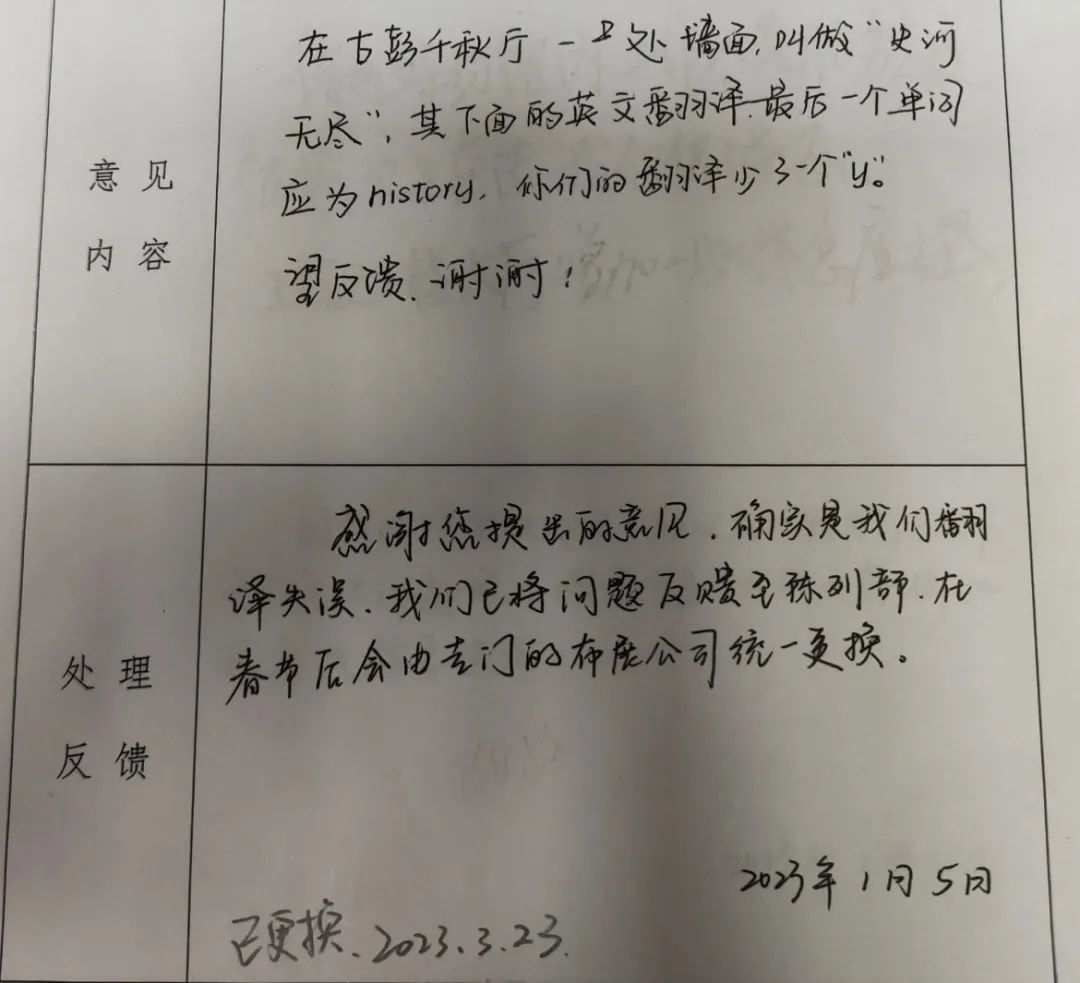 在古彭千秋厅一处墙面,叫做“史河
无尽”,其下面的英文翻译最后一个单词
应为history,你们的翻译少了一个“y”。
望反溃、谢谢!
意见
内容
感谢您提出的意见,确实是我们翻
译失误、我们已将问题反馈至陈列部,在
春节后会由专门的布展公司统一更换。
处理
反馈
2023年1月5日
已更换、2023.3.23.